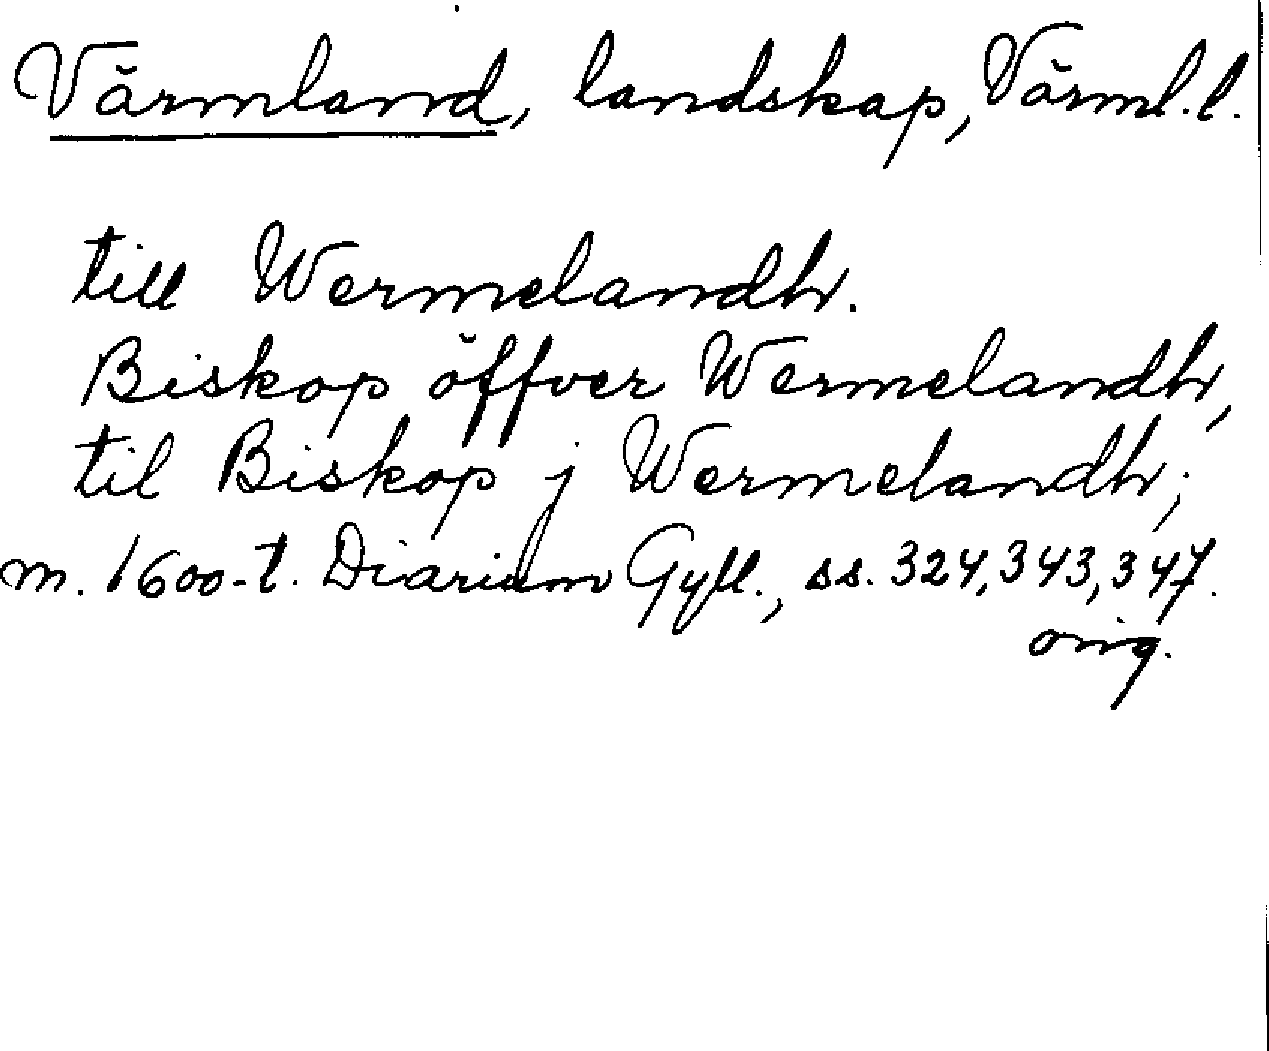 Värmland, landskap, Värml. l.
till Wermelandh.
Biskop öffver Wermelandh,
til Biskop j Wermelandh;
m. 1600-t. Diarium Gyll., ss. 324, 343, 347.
orig.